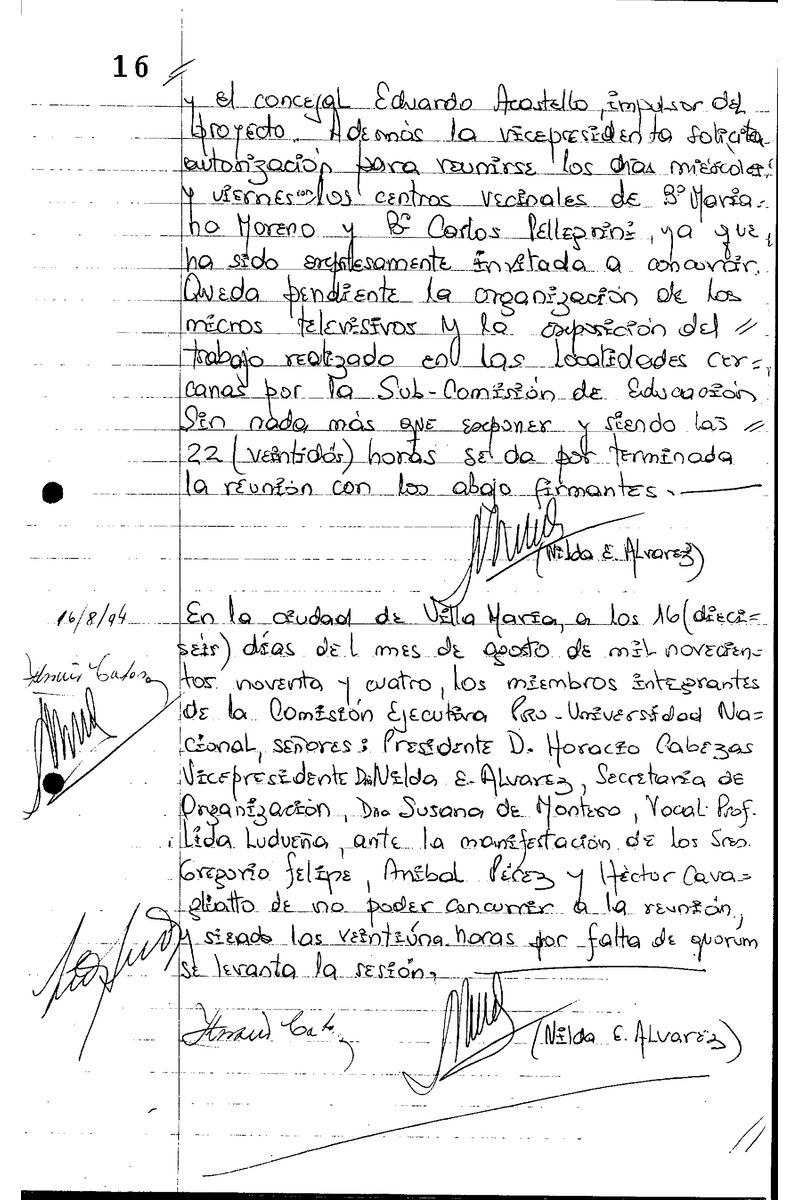 16 //
y el concejal Eduardo Acastello, impulsor del
proyecto. Además la vicepresidenta solicita
autorización para reunirse los días miércoles
y viernes con los centros vecinales de Bº Maria-
no Moreno y Bº Carlos Pellegrini, ya que,
ha sido expresamente invitada a concurrir.
Queda pendiente la organización de los
micros televisivos y la exposición del //
trabajo realizado en las localidades cer=
canas por la Sub-Comisión de Educación
Sin nada más que exponer y siendo las //
22 (veintidós) horas se da por terminada
la reunión con los abajo firmantes.
(Nilda E. Alvarez)
16/8/94
En la ciudad de Villa María, a los 16 (dieci=
séis) días del mes de agosto de mil novecien-
tos noventa y cuatro, los miembros integrantes
de la Comisión Ejecutiva Pro-Universidad Na=
cional, señores: Presidente D. Horacio Cabezas
Vicepresidente Dña Nilda E. Alvarez, Secretaria de
Organización, Dña Susana de Montero, Vocal Prof.
Lida Ludueña, ante la manifestación de los Sres.
Gregorio Felipe, Anibal Pérez y Héctor Cava=
gliatto de no poder concurrir a la reunión,
y siendo las veintiúna horas por falta de quorum
se levanta la sesión.
(Nilda E. Alvarez)
//